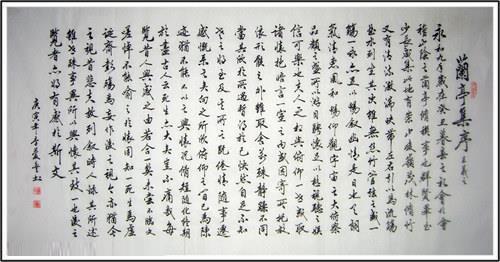 蘭亭集序 王羲之
永和九年歲在癸丑暮春之初會於會
稽山陰之蘭亭修禊事也群賢畢至
少長咸集此地有崇山峻嶺茂林修竹
又有清流激湍映帶左右引以為流觴
曲水列坐其次雖無絲竹管弦之盛一
觴一詠亦足以暢敘幽情是日也天朗
氣清惠風和暢仰觀宇宙之大俯察
品類之盛所以游目騁懷足以極視聽之娛
信可樂也夫人之相與俯仰一世或取
諸懷抱晤言一室之內或因寄所托放
浪形骸之外雖取舍萬殊靜躁不同
當其欣於所遇暫得於己快然自足不知
老之將至及其所之既倦情隨事遷
感慨系之矣向之所欣俯仰之間已為陳
迹猶不能不以之興懷況修短隨化終期
於盡古人云死生亦大矣豈不痛哉每
覽昔人興感之由若合一契未嘗不臨文
嗟悼不能喻之於懷固知一死生為虛
誕齊彭殤為妄作後之視今亦猶今
之視昔悲夫故列敘時人錄其所述
雖世殊事異所以興懷其致一也後之
覽者亦將有感於斯文
庚寅年